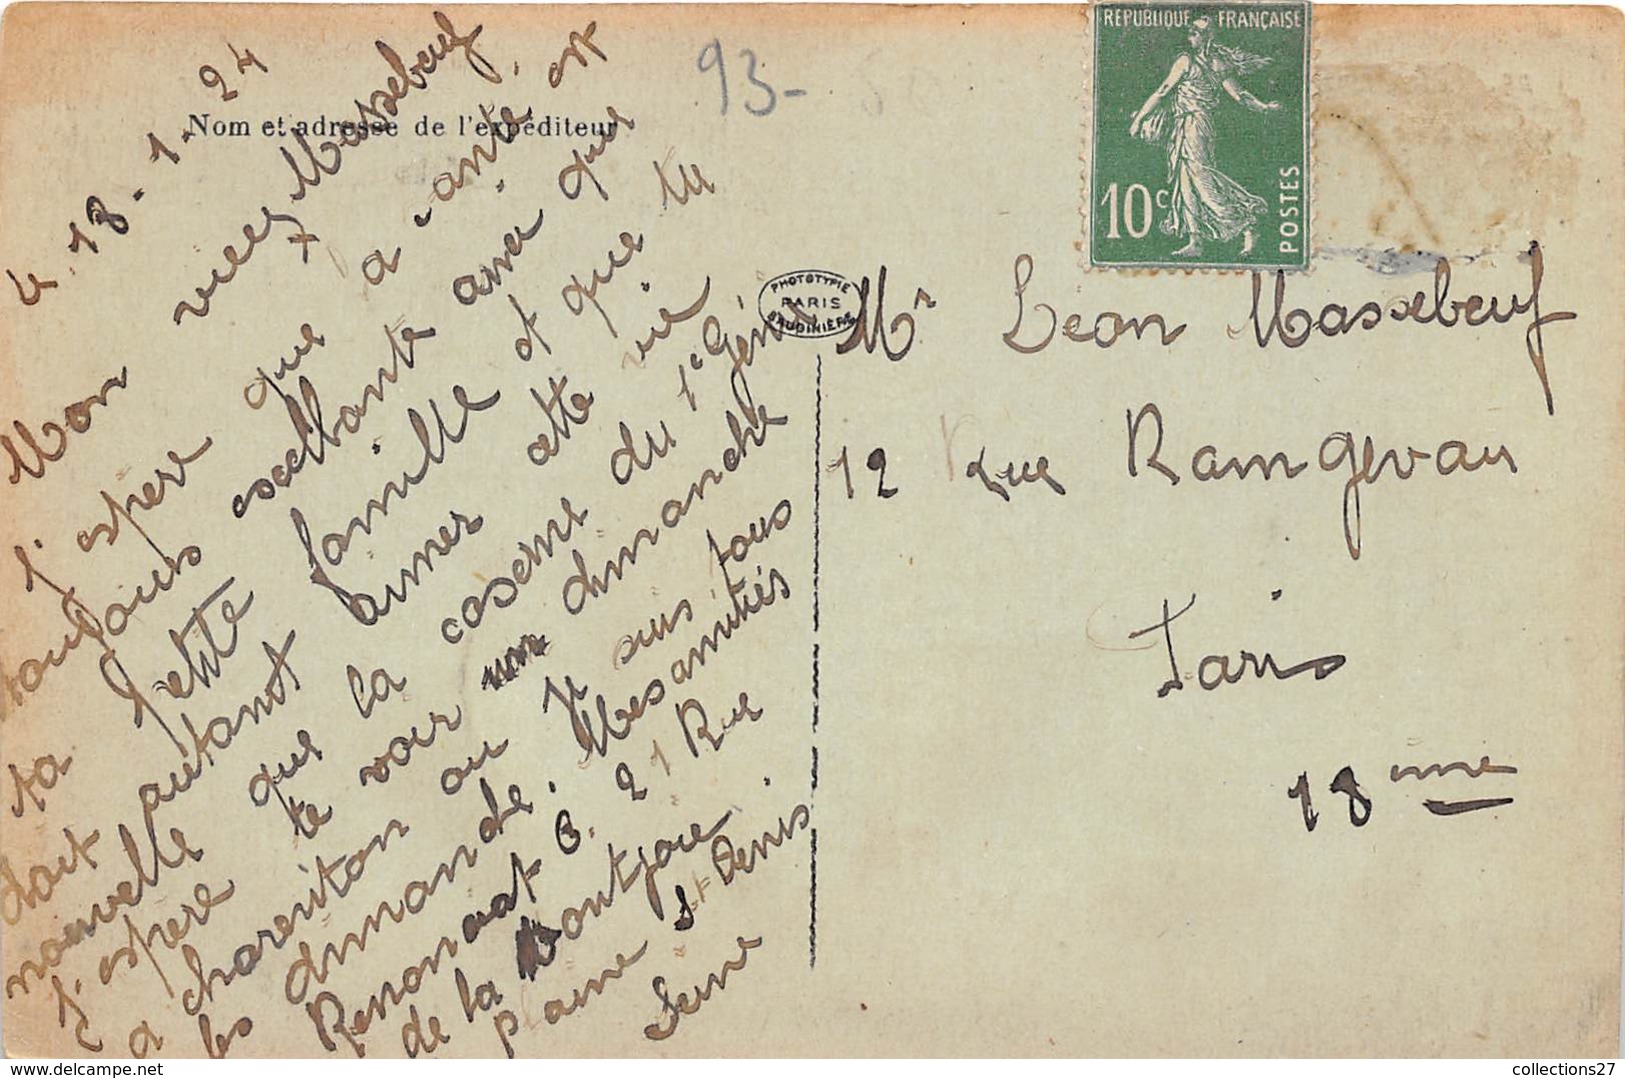 le 18-1-24
Nom et adresse de l'expéditeur
93-
Mon vieux Massebeuf
J'espère que ta santé est
toujours excellante ainsi que
ta petite famille et que tu
doit autant aimer cette vie
nouvelle que la caserne du 1e Génie
J'espère te voir un dimanche
a charenton ou je suis tous
les dimanche. Mes amitiés
Renonvat B. 21 Rue
de la Montjoie
plaine St Denis
Seine
PHOTOTYPIE
PARIS
BAUDINIÈRE
REPUBLIQUE FRANÇAISE
10c
POSTES
Mr Leon Massebeuf
12 rue Ramgevau
Paris
18eme
collections27